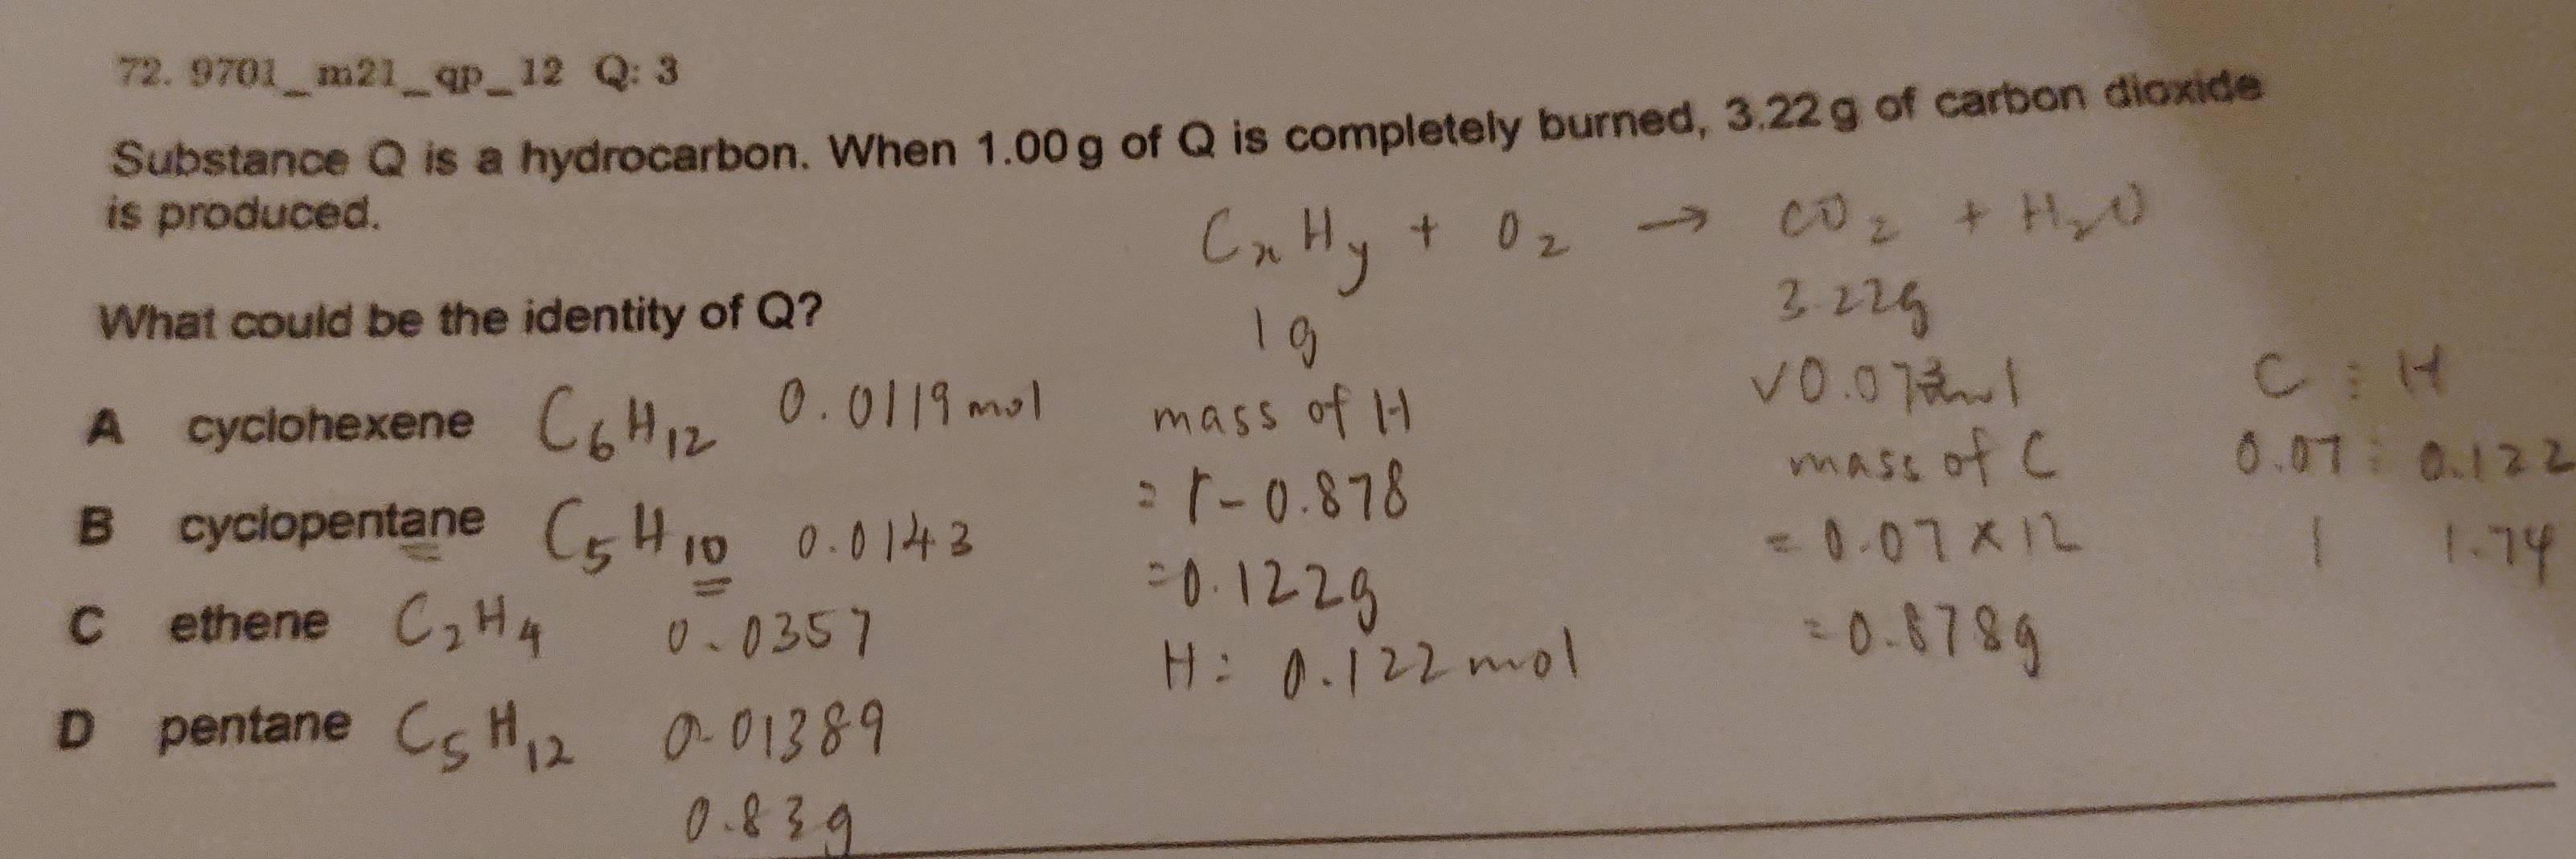 72. 9701_m21_qp_12 Q: 3
Substance Q is a hydrocarbon. When 1.00 g of Q is completely burned, 3.22 g of carbon dioxide
is produced.
CxHy + O2 → CO2 + H2O
1g 3.22g
What could be the identity of Q?
A cyclohexene C6H12 0.0119 mol
B cyclopentane C5H10 0.0143
C ethene C2H4 0.0357
D pentane C5H12 0.01389
0.83g
mass of H
= 1 - 0.878
= 0.122g
H: 0.122 mol
mass of C
= 0.07 × 12
= 0.878g
C : H
0.07 : 0.122
1 1.74